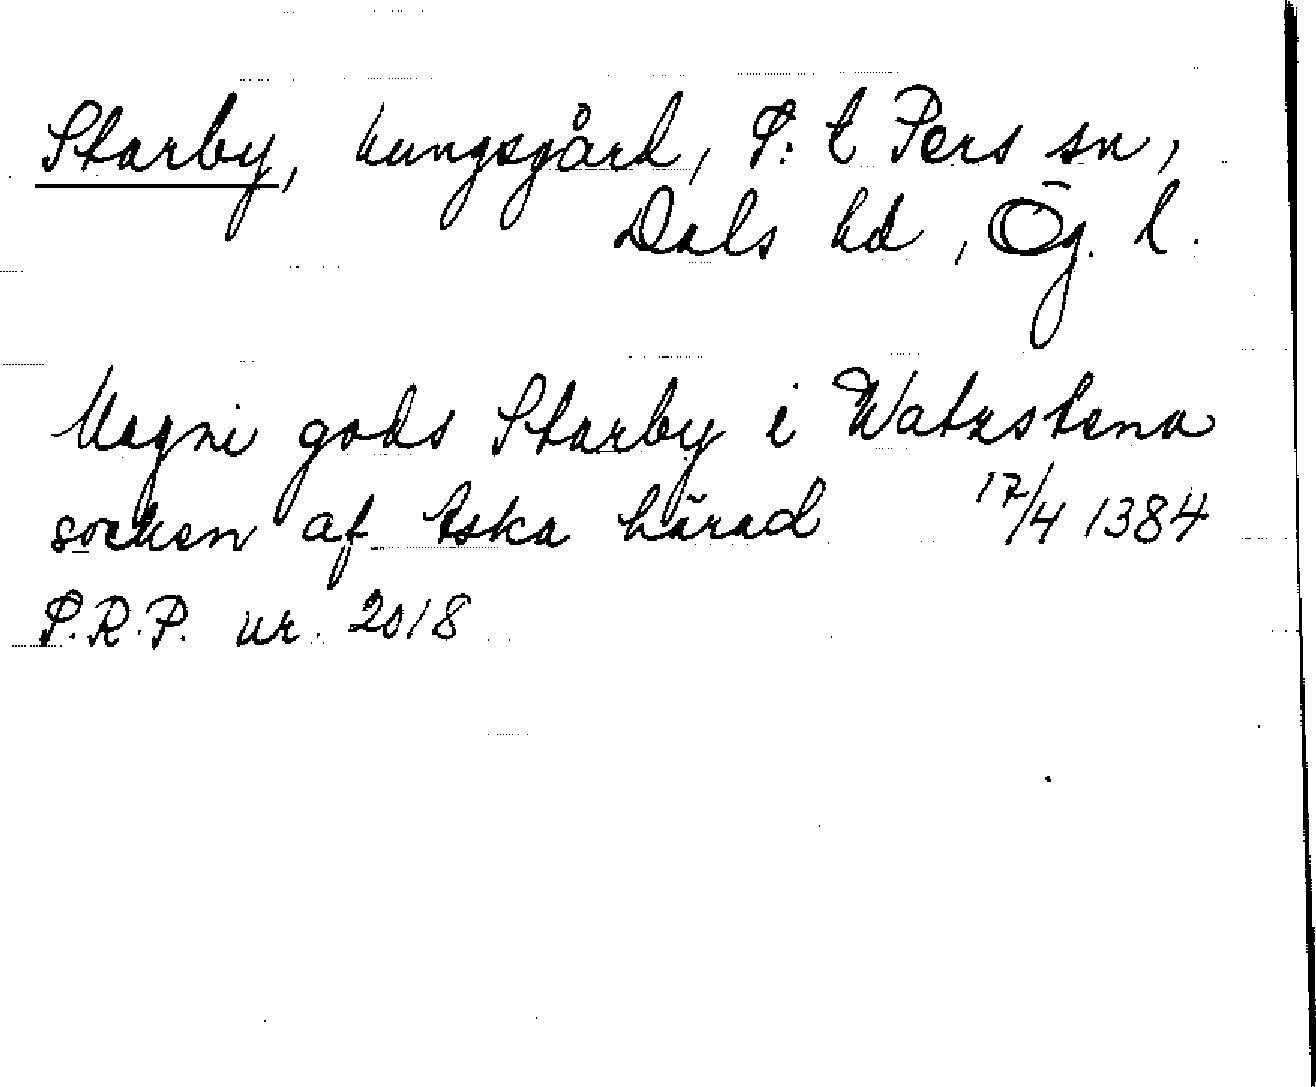 Starby, kungsgård, S:t Pers sn,
Dals hd, Ög. l.
Magni gods Starby i Watzstena
socken af Aska härad 17/4 1384
S.R.P. nr. 2018